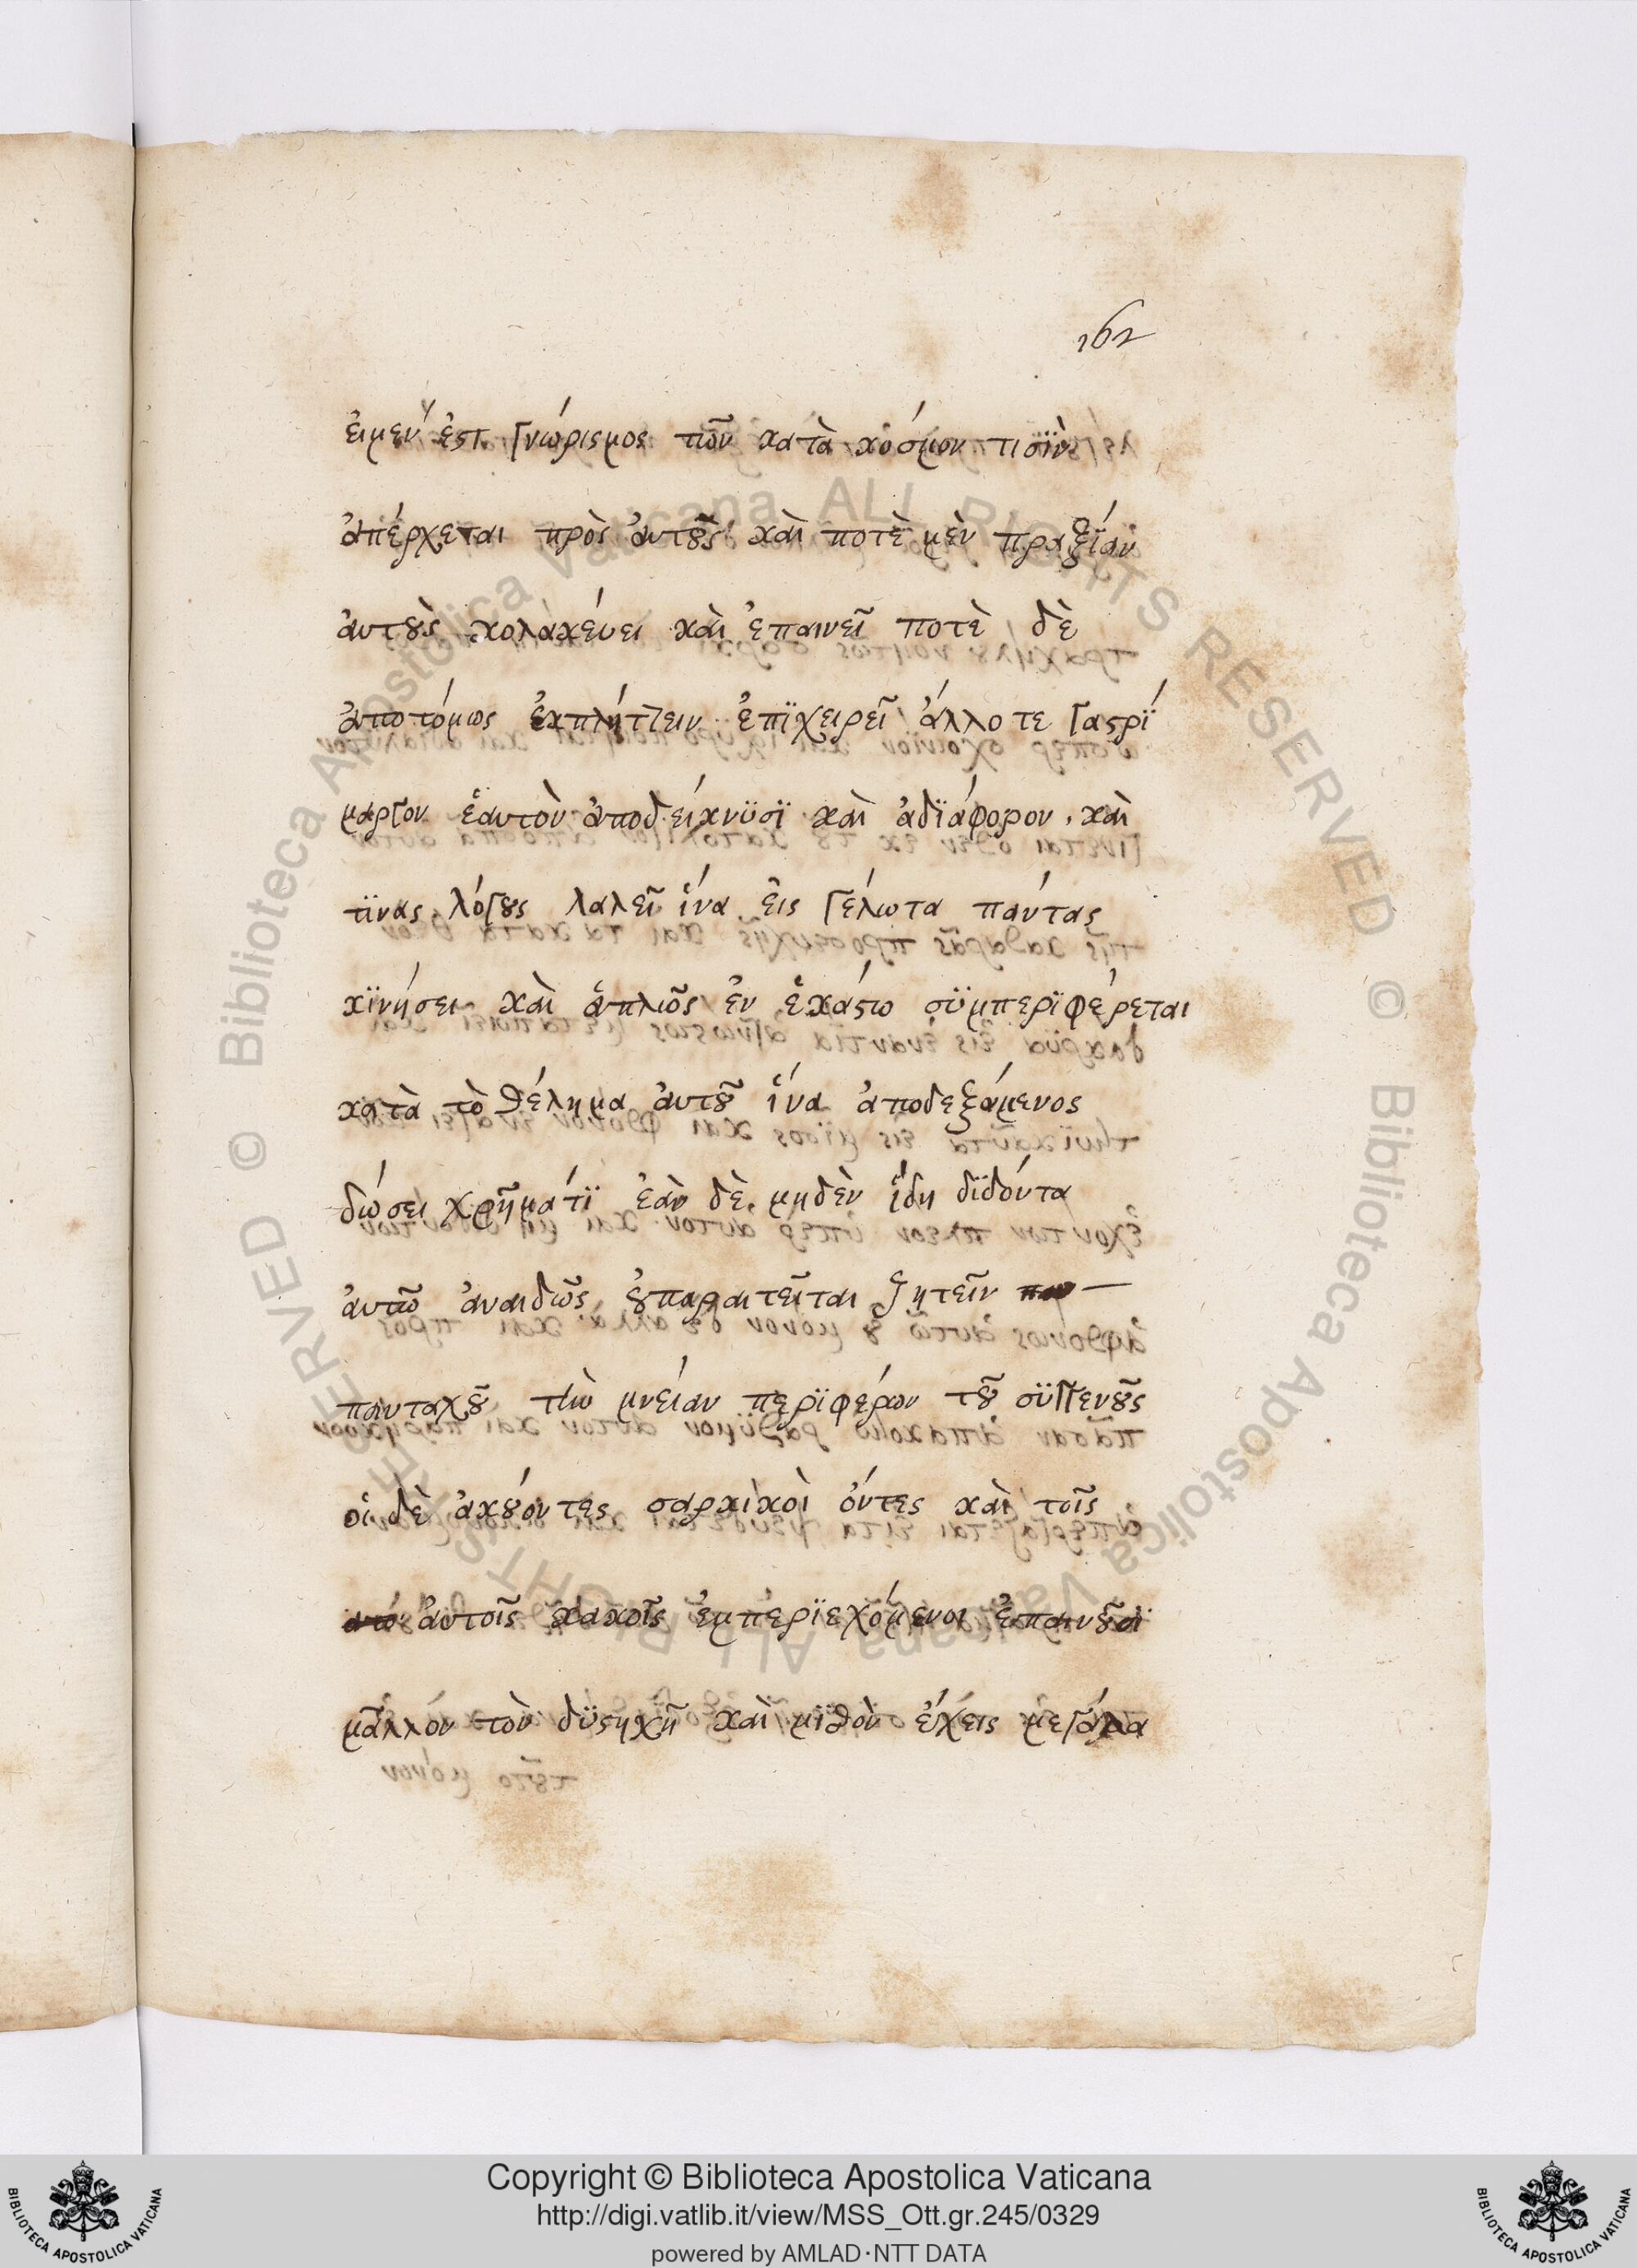 162
ἐιμεν ἐστ γνώρισμος τῶν κατὰ κόσμον τισϊν
ἀπέρχεται πρὸς ἀυτοὺς καὶ ποτὲ μὲν πραξίαν
ἀυτοὺς κολακέυει καὶ ἐπαινεῖ ποτὲ δὲ
ἀποτόμως ἐκπλήττειν ἐπϊχειρεῖ ἄλλοτε γαστρΐ
μαργον ἑαυτὸν ἀποδείκνϋσϊ καὶ ἀδϊάφορον, καὶ
τϊνας λόγους λαλεῖ ἵνα ἐις γέλωτα πάντας
κϊνήσει καὶ ἁπλῶς ἐν ἑκάστω σϋμπερϊφέρεται
κατὰ τὸ θέλημα ἀυτοῦ ἵνα ἀποδεξάμενος
δώσει χρῆμάτϊ ἐὰν δὲ μηδὲν ἴδη δϊδόντα
ἀυτῶ ἀναιδῶς ουπαραιτεῖται ζητεῖν
πανταχοῦ τὴν μνείαν περϊφέρων τοῦ σϋγγενοῦς
οἱ δὲ ἀκούοντες σαρκικοὶ ὄντες καὶ τοῖς
ἀυτοῖς κακοῖς ἐμπερϊεχόμενοι ἐπαινοῦσϊ
μᾶλλόν τὸν δϋσηχῆ καὶ μϊθὸν ἔχεις μεγάλα
Copyright © Biblioteca Apostolica Vaticana
http://digi.vatlib.it/view/MSS_Ott.gr.245/0329
powered by AMLAD·NTT DATA
BIBLIOTECA APOSTOLICA VATICANA
BIBLIOTECA APOSTOLICA VATICANA
© Biblioteca Apostolica Vaticana ALL RIGHTS RESERVED
© Biblioteca Apostolica Vaticana ALL RIGHTS RESERVED